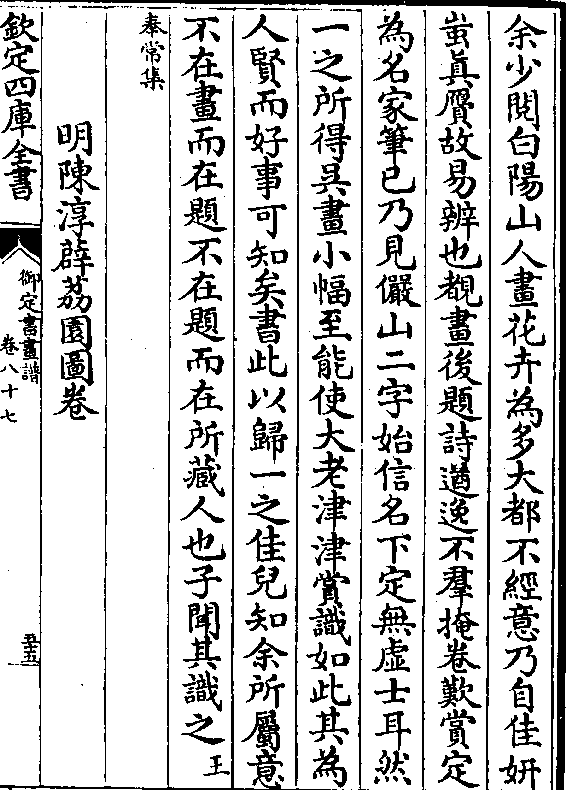 余少閱白陽山人畫花卉為多大都不經意乃自佳妍
蚩真贋故易辨也覩畫後題詩遒逸不羣掩卷歎賞定
為名家筆已乃見儼山二字始信名下定無虛士耳然
一之所得吳畫小幅至能使大老津津賞識如此其為
人賢而好事可知矣書此以歸一之佳兒知余所屬意
不在畫而在題不在題而在所藏人也子聞其識之王
奉常集
明陳淳薜荔園圖卷
欽定四庫全書
御定書畫譜
卷八十七
五十五